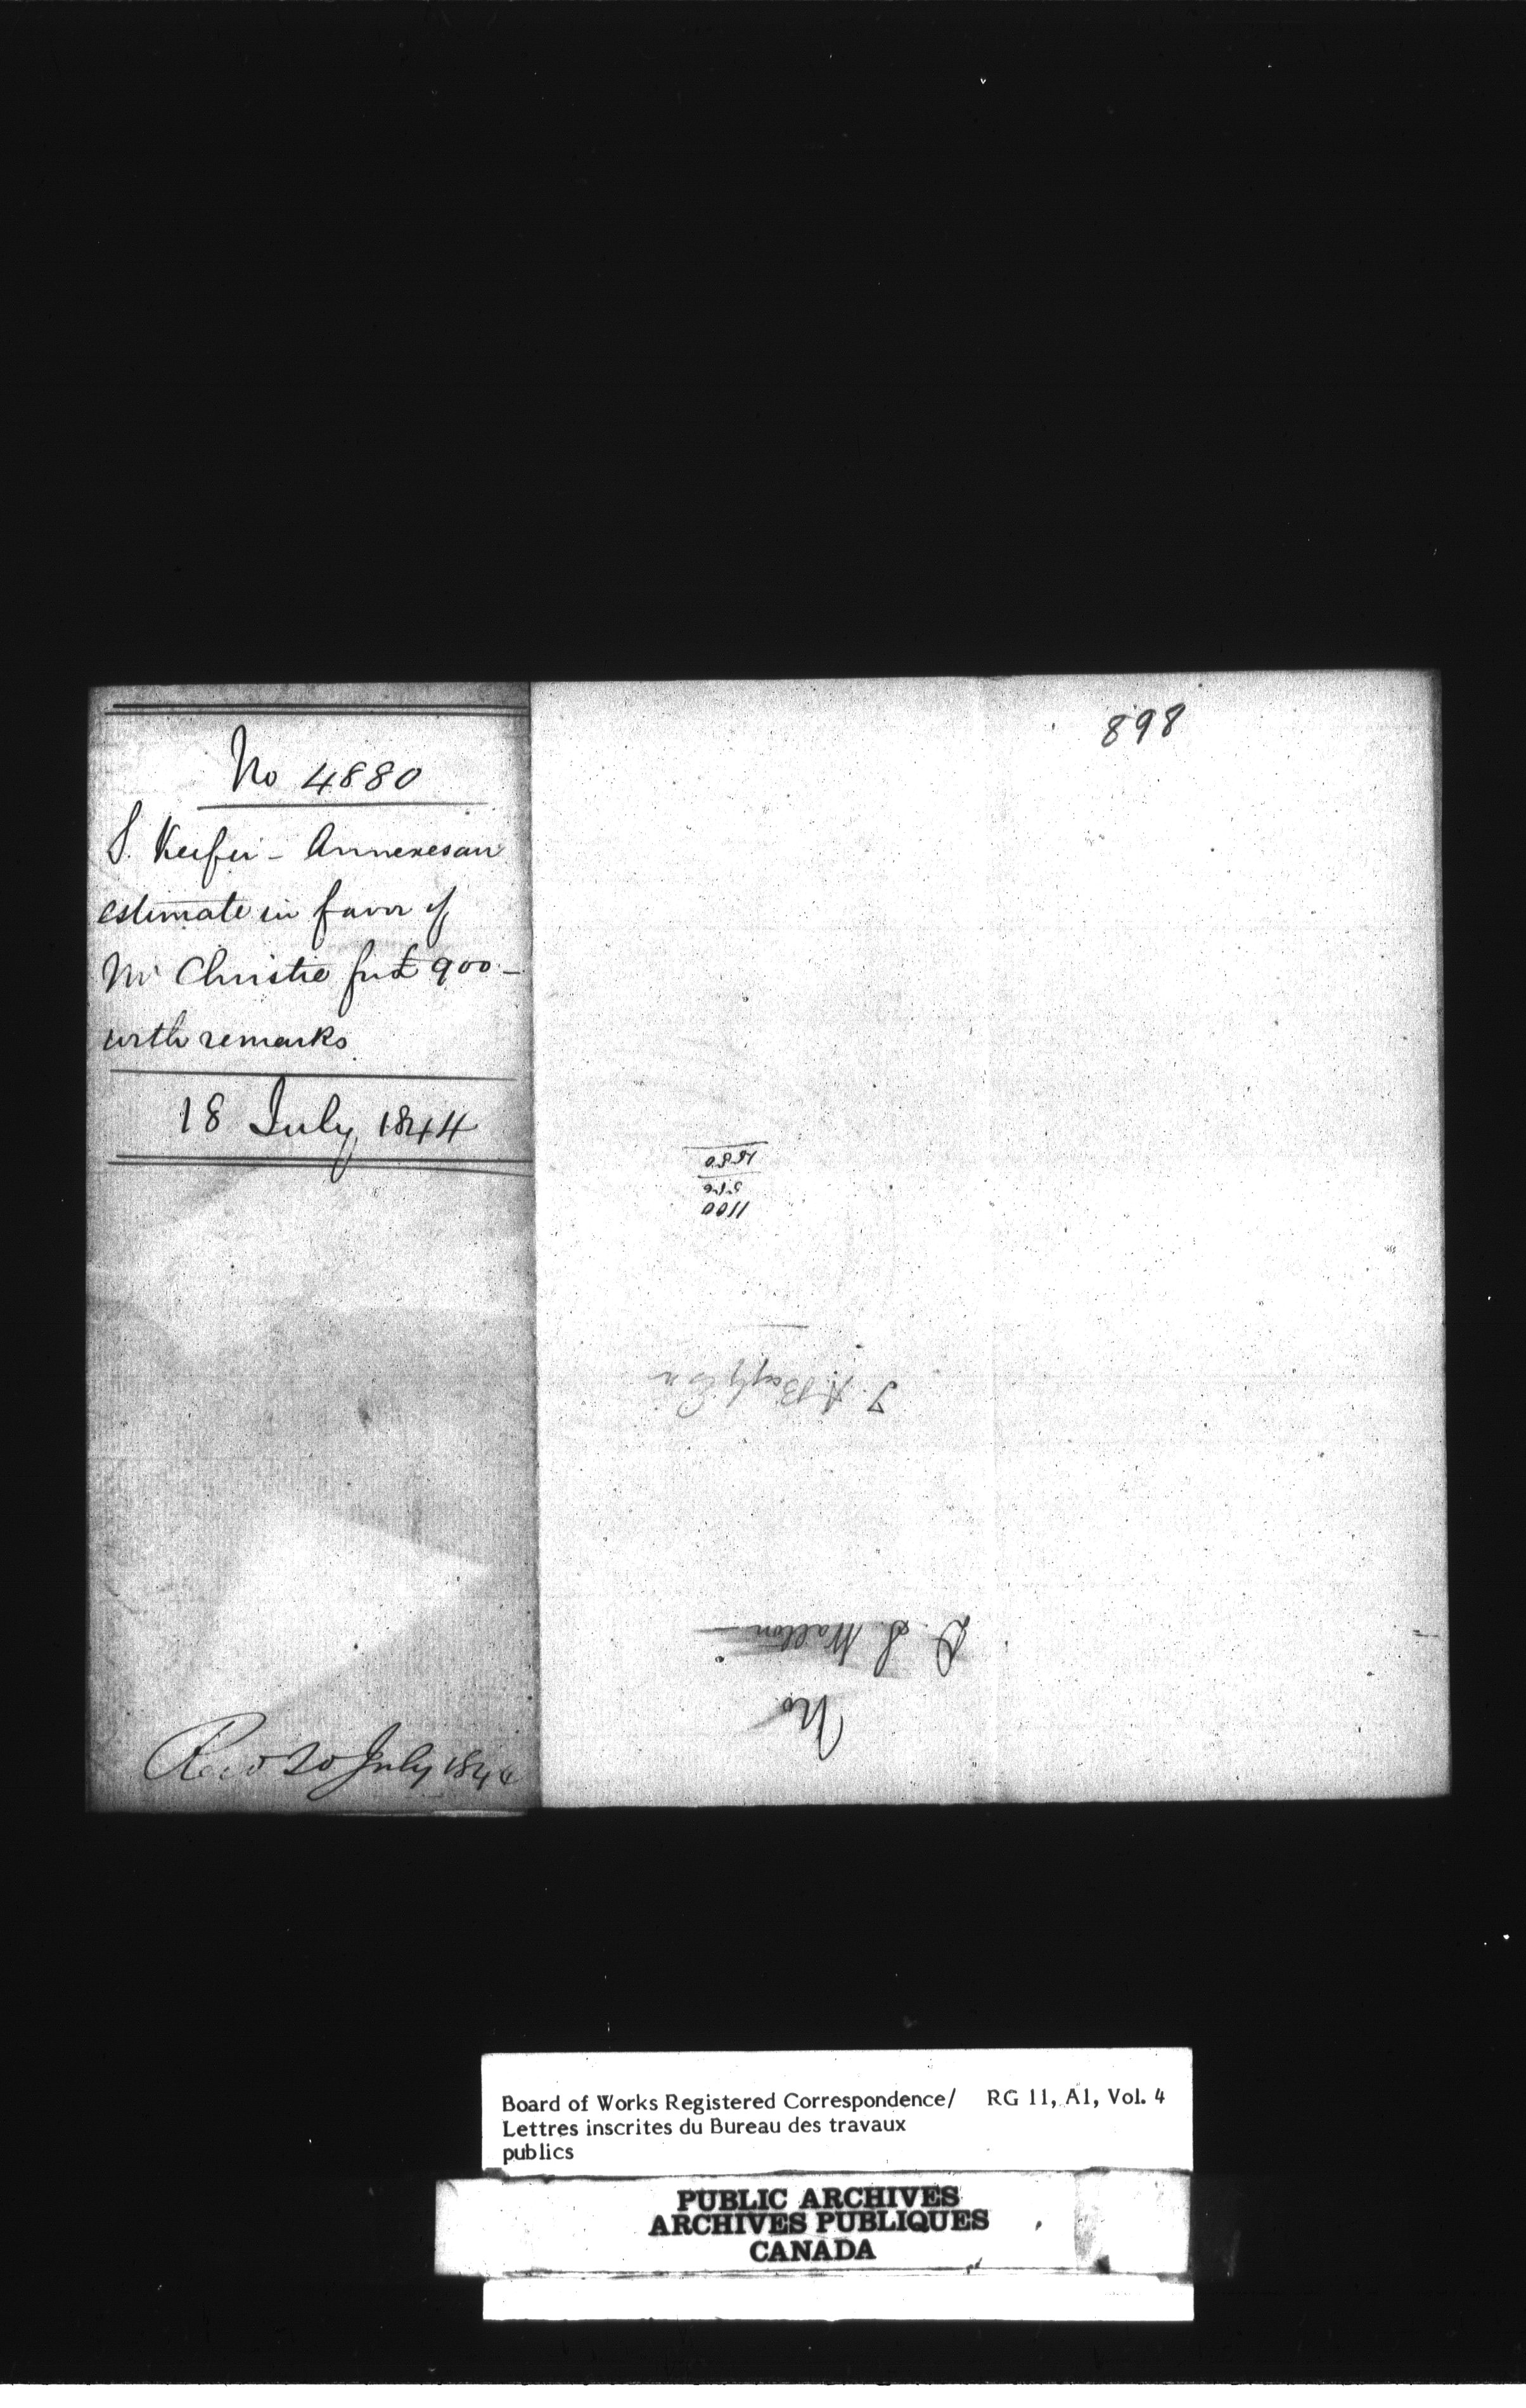 898
No 4880
S. Keefer - Annexes an
estimate in favor of
Mr Christie for £900 -
with remarks
18 July 1844
Recd 20 July 1844
1100
No
Board of Works Registered Correspondence/ RG 11, A1, Vol. 4
Lettres inscrites du Bureau des travaux
publics
PUBLIC ARCHIVES
ARCHIVES PUBLIQUES
CANADA